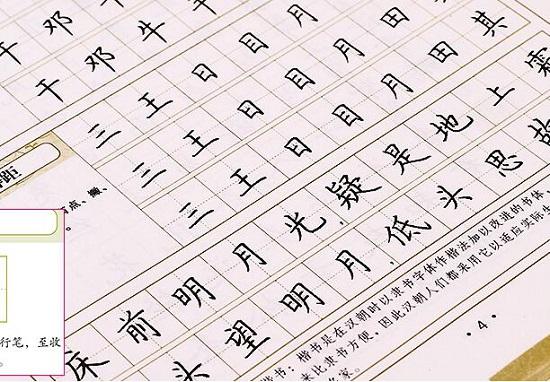 千邓牛
干邓牛
三王日目月
三王日目月田
三王日目月田其
床前明月光，疑是地上霜
头望明月，低头思故
距
点、撇、
行笔，至收
。
书：楷书是在汉朝时以隶书字体作楷法加以改造的书体
来比隶书方便，因此汉朝人们都采用它以适应实际生
·4·